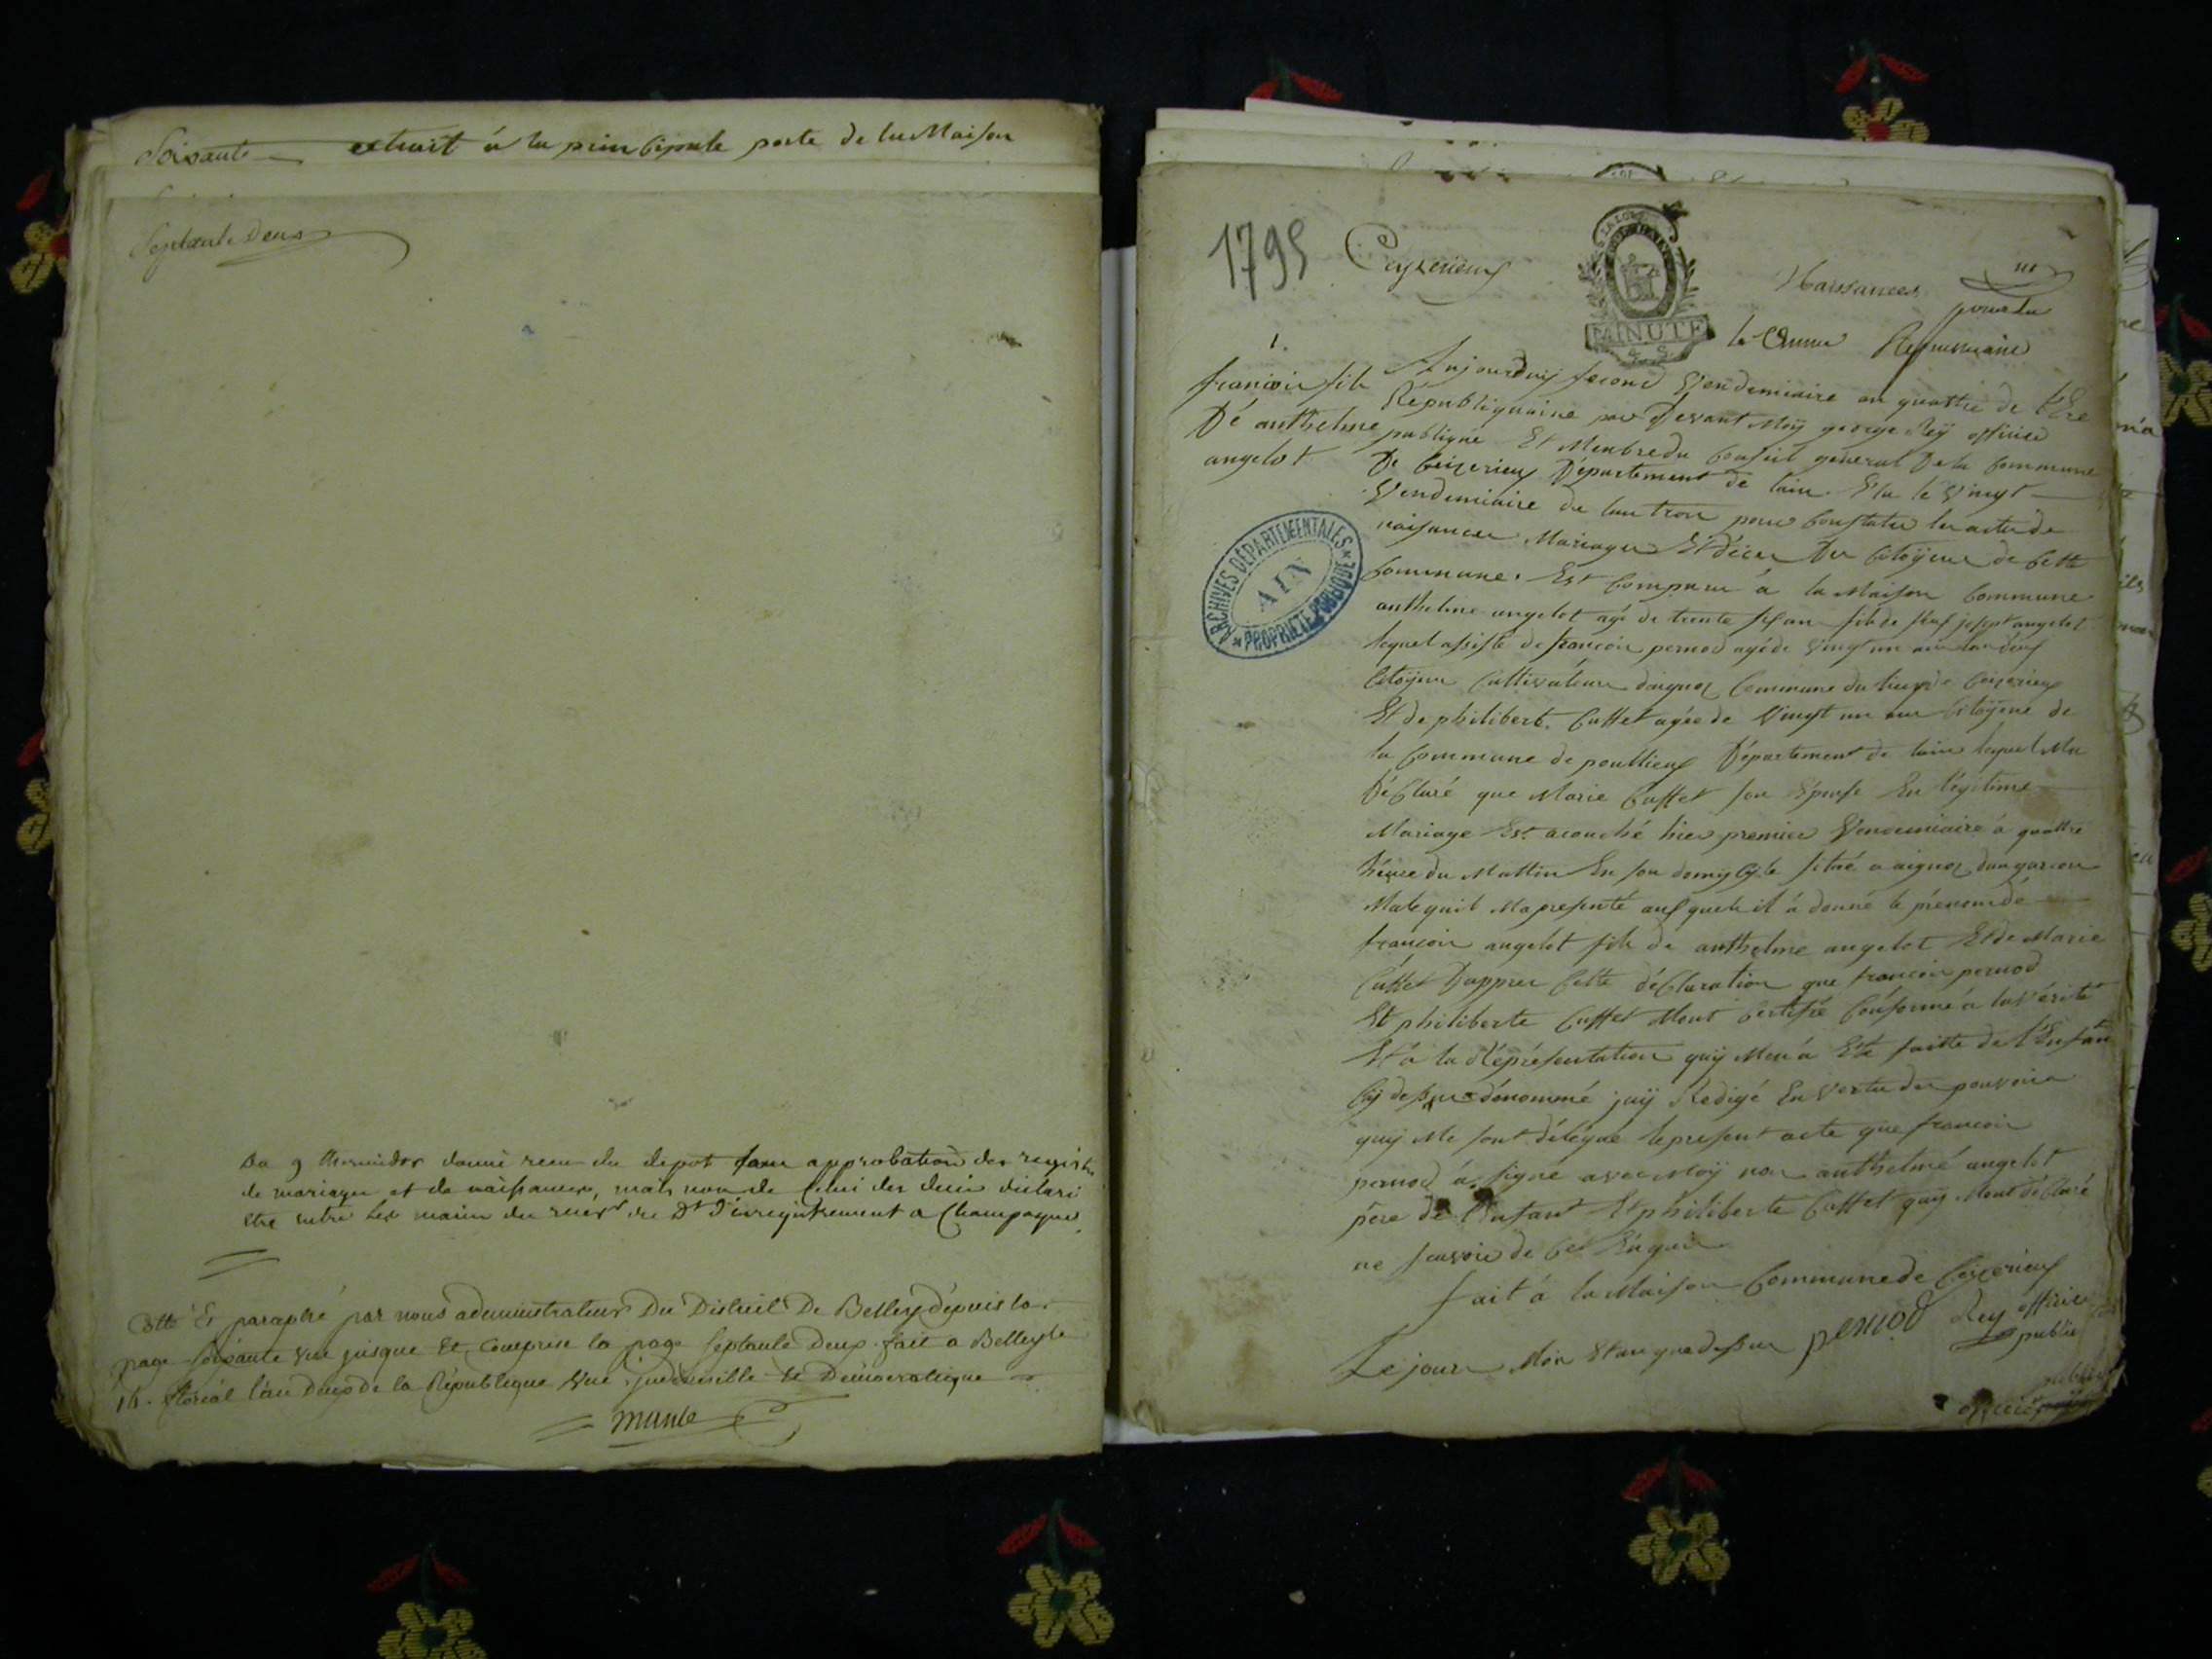 Soixante extrait à la principale porte de la Maison
Septante Deux
Du 9 thermidor donné recu du depot sans approbation des registres
de mariages et de naissances, mais non de celui des deces déclaré
etre entre les mains du recevr du Dt d'enregistrement a Champagne
Cotté Et paraphé par nous administrateur Du District De Belley dépuis la
page soixante une jusque Et Comprise la page septante Deux. fait a Belley le
14. floréal l'an deux de la République une indivisible et Democratique
Mante
1795
Ceyzerieux
Naissances
pour la
MINUTE
4 S.
le Comune
1.
francois fils
Dé anthelme
angelot
ARCHIVES DÉPARTEMENTALES
AIN
PROPRIÉTÉ PUBLIQUE
Aujourduy second Vendemiaire an quatre de l'Ere
Républiquaine par Devant Moÿ george Reÿ officier
publique Et Menbre du Conseil general De la Commune
De Ceizerieux Département de lain. Elu le Vingt
Vendemiaire de lan trois pour Constater les actes de
naisances Mariages Et déces des Citoÿens de Cette
Commune. Est Comparu à la Maison Commune
anthelme angelot agé de trente six ans fils de feux josept angelot
lequel assisté de francois pernod agé de Vingt un ans
Citoÿen Cultivateur daignoz Commune du Ceizerieux
Et de philibert. Cuffet agée de Vingt un ans Citoÿene de
la Commune de poullieux Département de lain lequel Ma
Déclaré que Marie Cuffet son Epouse En légitime
Mariage Est acouché hier premier Vendemiaire à quattre
héure du Mattin En son domÿcÿle situé a aignoz dun garcon
Male quil Ma presenté au quel il à donné le prénom dé
francois angelot fils de anthelme angelot Et de Marie
Cuffet D'appres Cette déclaration que francois pernod
Et philiberte Cuffet Mont Certifié Conforme à la Vérité
Et à la Réprésentation quÿ Men'a Eté faitte de l'Enfant
Cÿ dessus dénommé jaÿ Rédigé En Vertu des pouvoirs
quÿ Me sont délégué le présent acte que francois
pernod à signé avec Moÿ non anthelmé angelot
pére de l'Enfant Et philiberte Cuffet quÿ Mont déclaré
ne scavoir de Ce Enquis
fait à la Maison Commune de Ceizerieux
Le jour Mois Et an que dessus pernod Rey officier
public